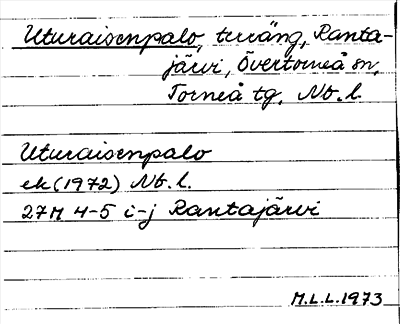 Uturaisenpalo, terräng, Ranta-
järvi, Övertorneå sn,
Torneå tg, Nb. l.
Uturaisenpalo
ek (1972) Nb. l.
27M 4-5 i-j Rantajärvi
M.L.L. 1973